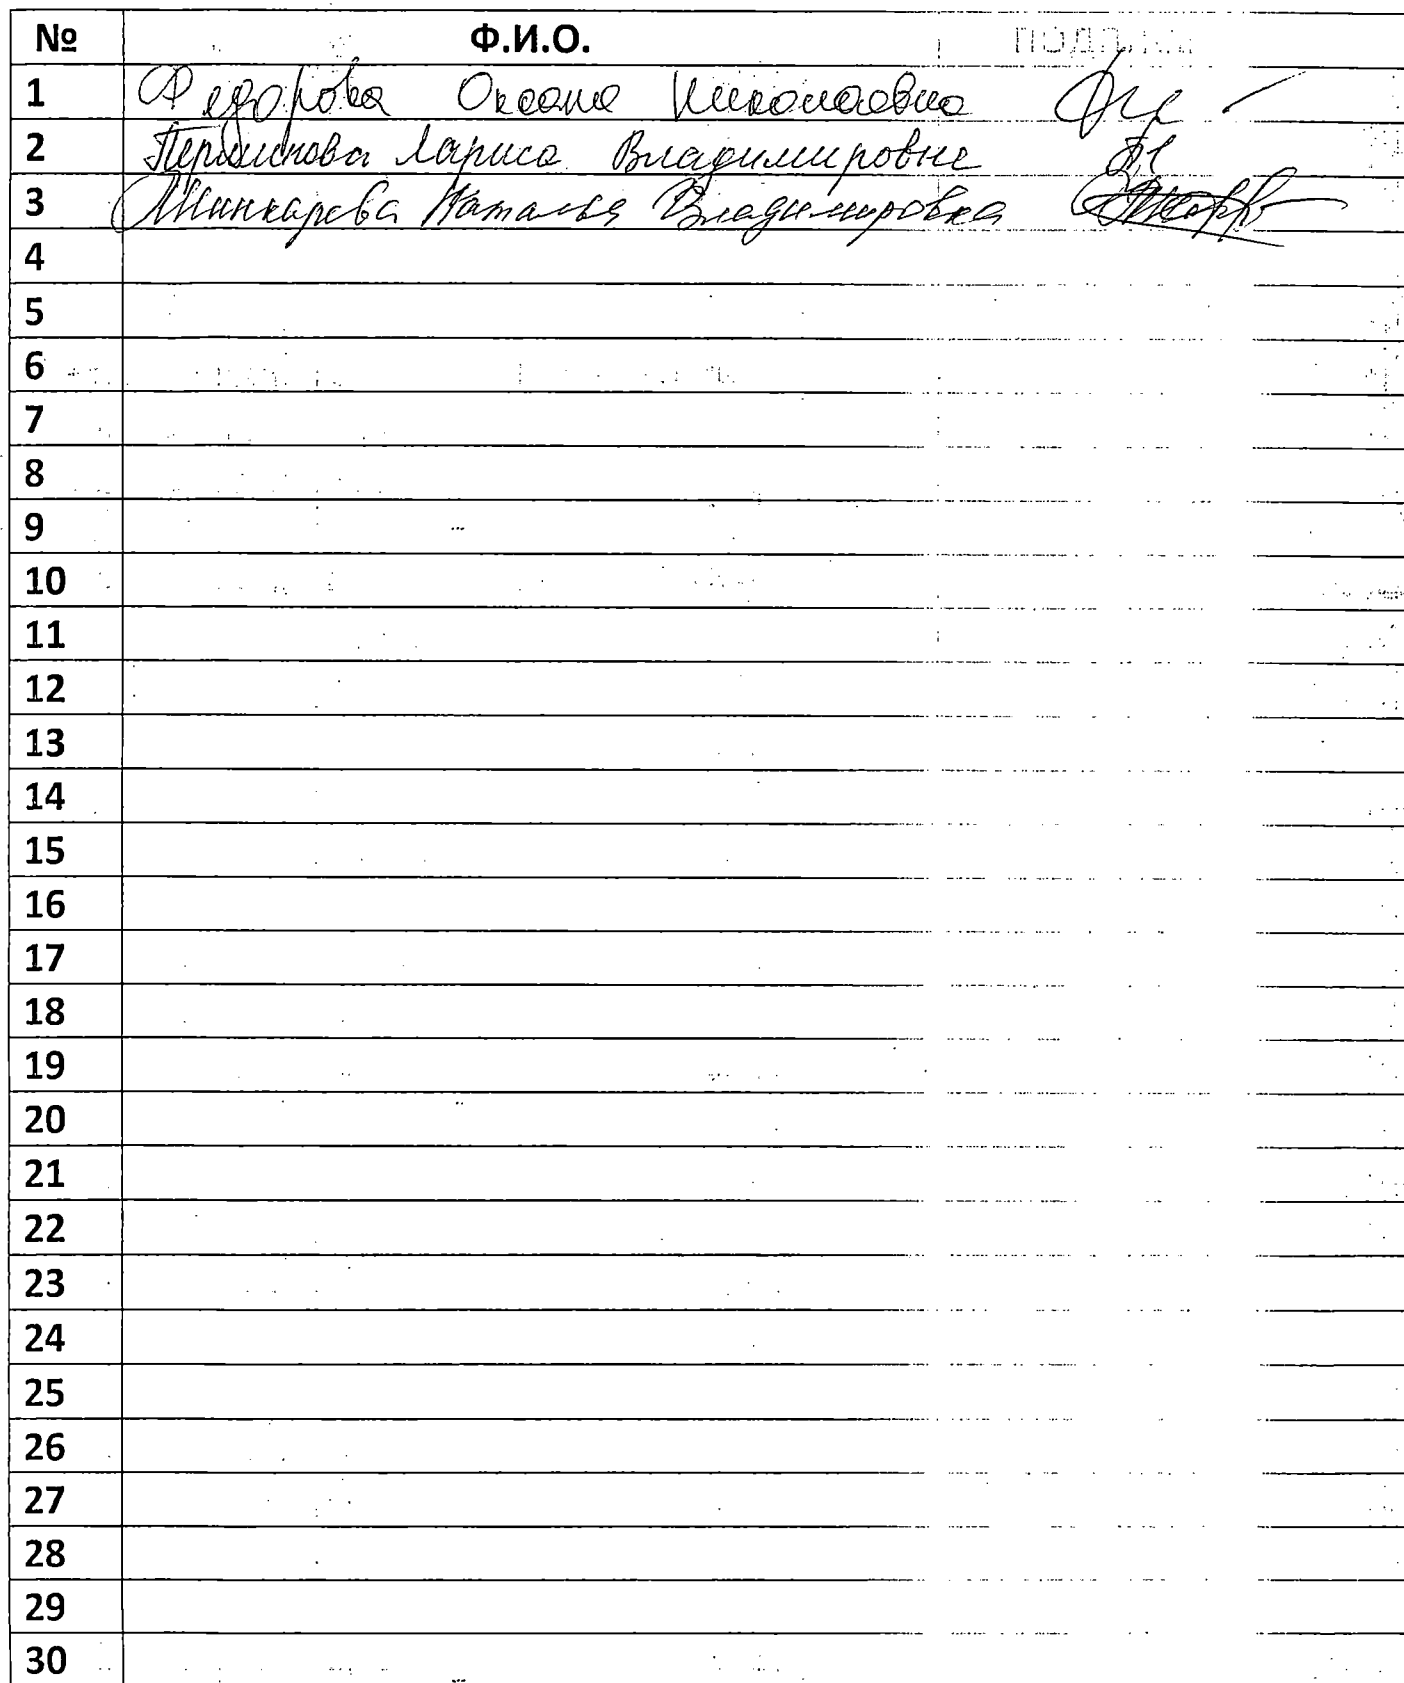 № Ф.И.О.
1 Федорова Оксана Николаевна
2 Лариса Владимировне
3 Наталья Владимировна
4
5
6
7
8
9
10
11
12
13
14
15
16
17
18
19
20
21
22
23
24
25
26
27
28
29
30